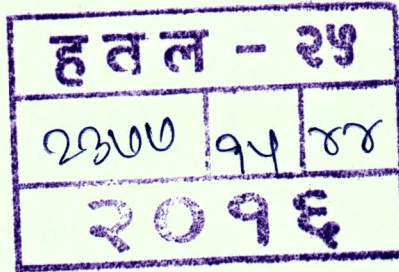 हतल - २५
२३७७ १५ ४४
२०१६